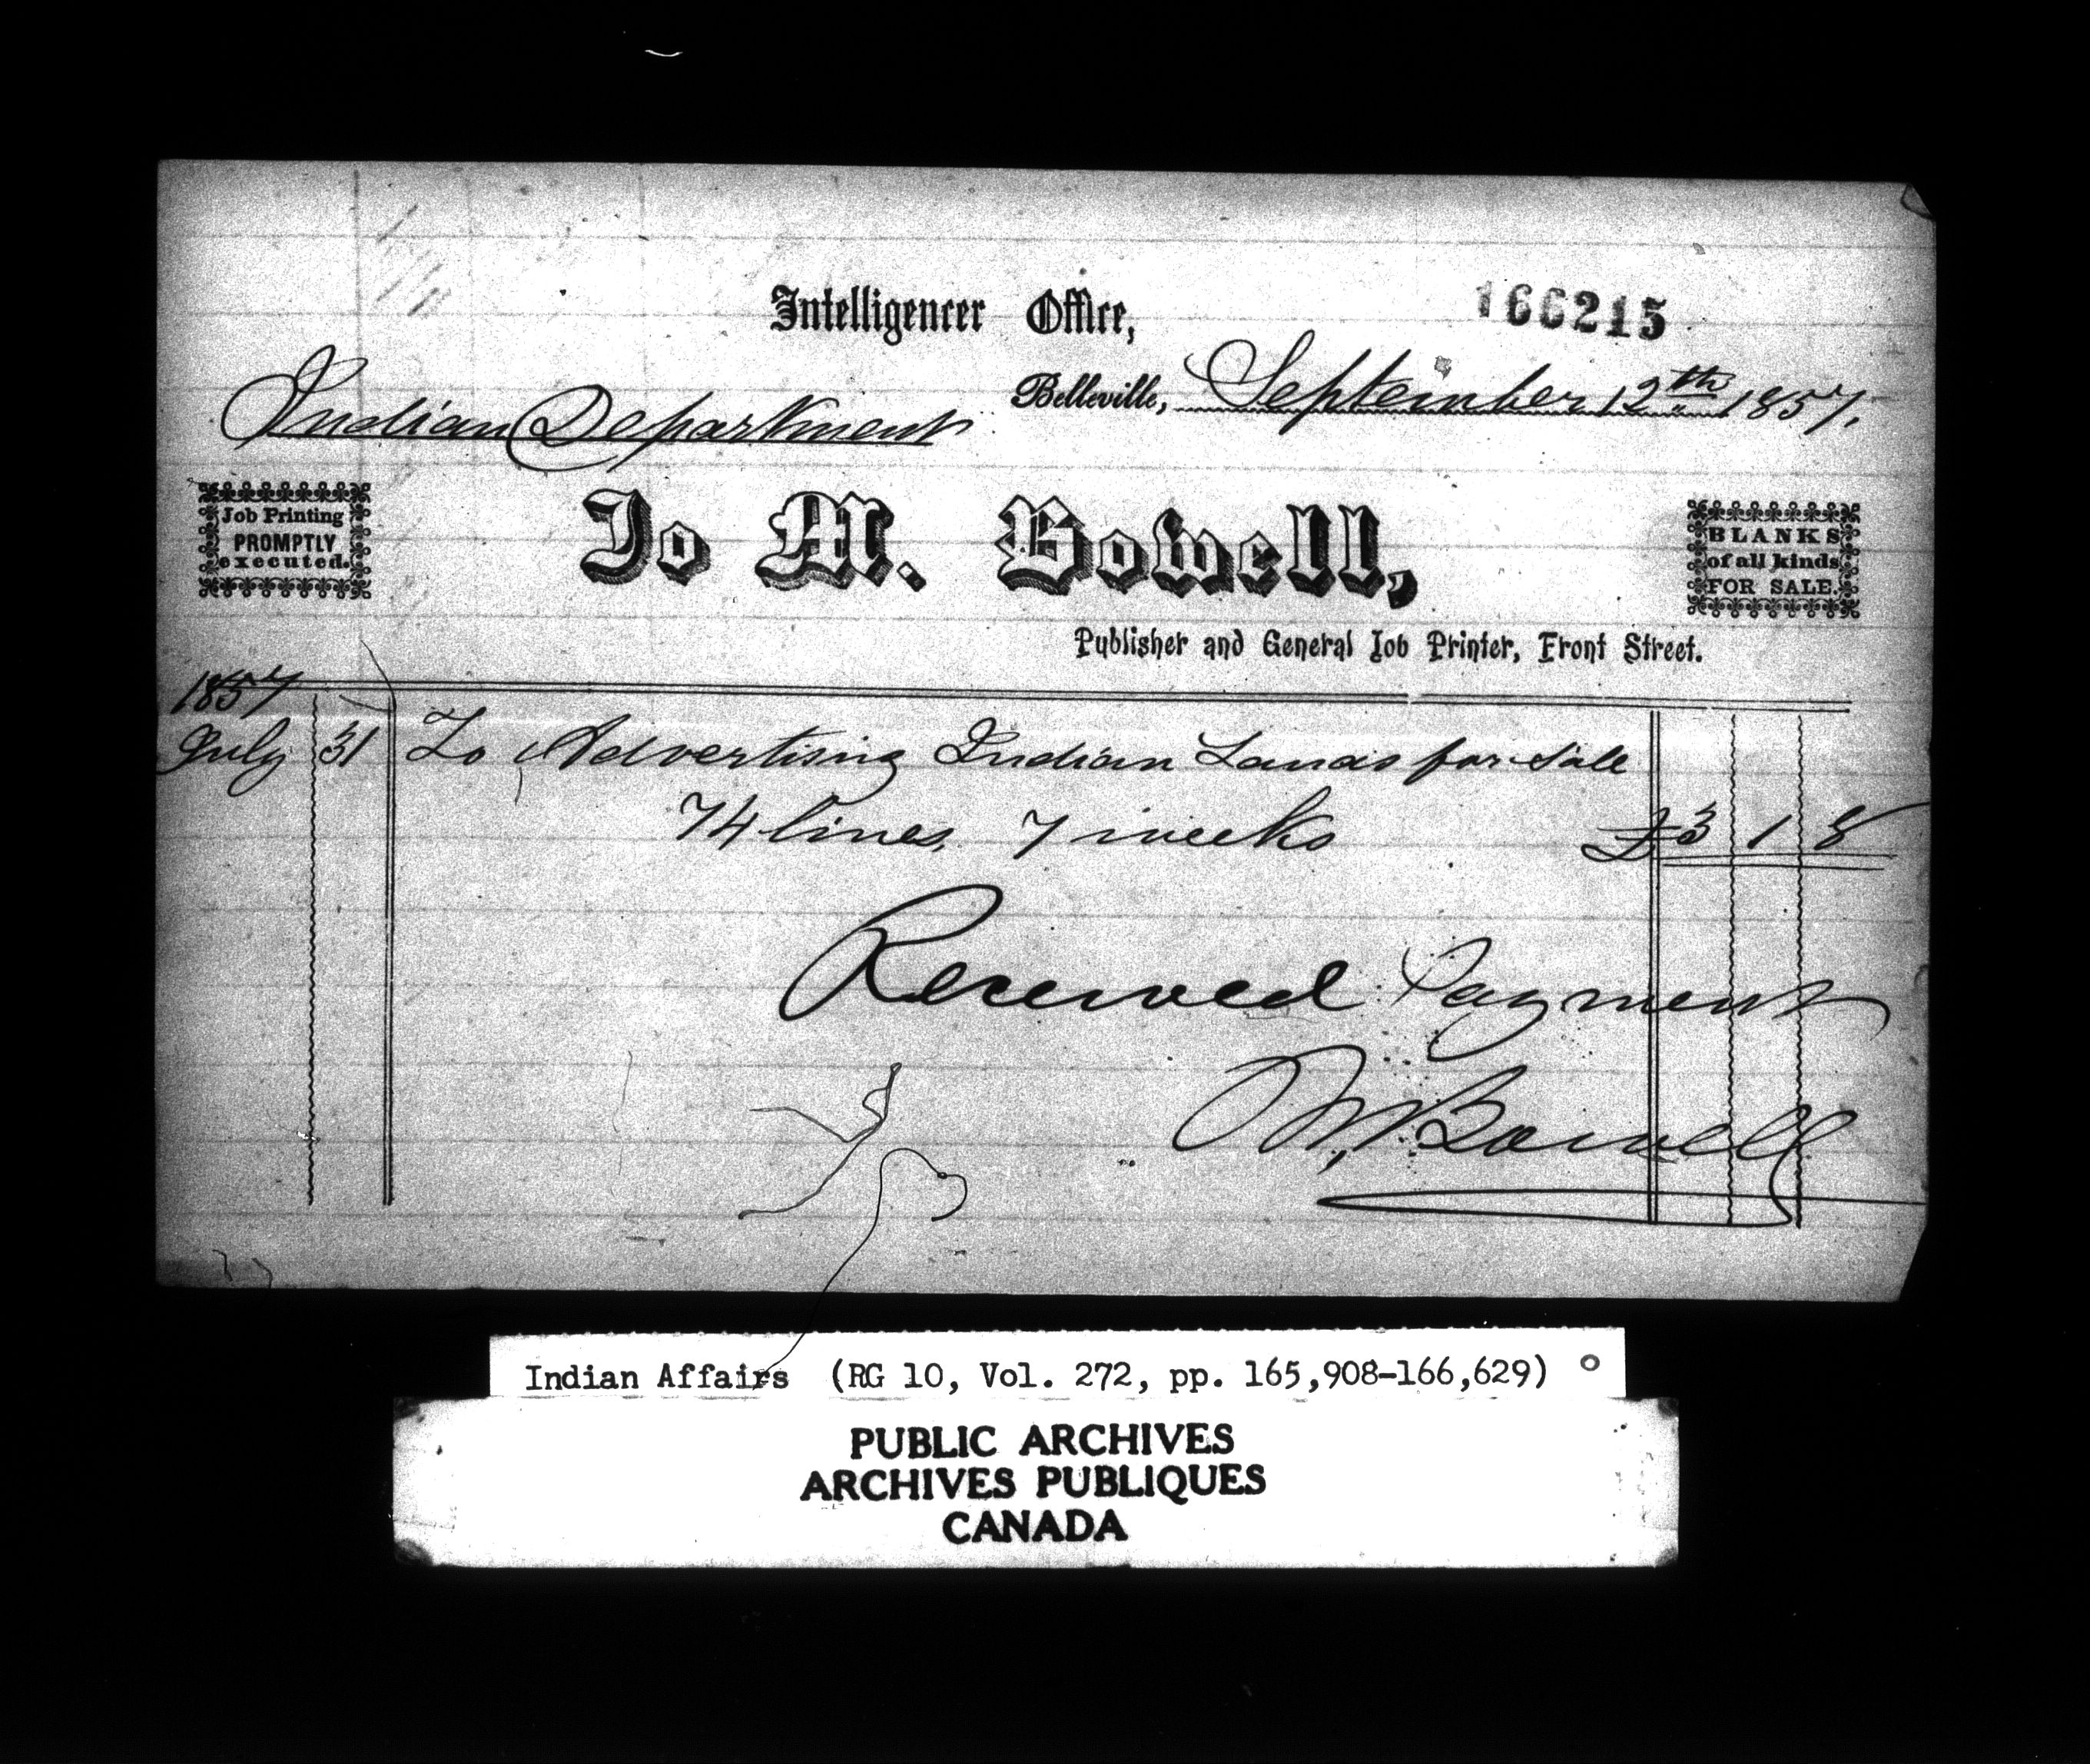 Intelligencer Office,
166215
Belleville, September 12th 1857.
Indian Department
Job Printing
PROMPTLY
executed.
To M. Bowell,
BLANKS
of all kinds
FOR SALE.
Publisher and General Job Printer, Front Street.
1857
July 31 To Advertising Indian Lands for Sale
74 lines, 7 weeks £3 1 8
Received Payment
M, Bowell
Indian Affairs (RG 10, Vol. 272, pp. 165,908-166,629)
PUBLIC ARCHIVES
ARCHIVES PUBLIQUES
CANADA